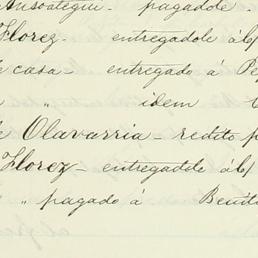 Ansoategui - pagadole.
Florez - entregadole á
casa - entregado á
" idem
Olavarria - redito
Florez - entregadole á
" pagado á Benit